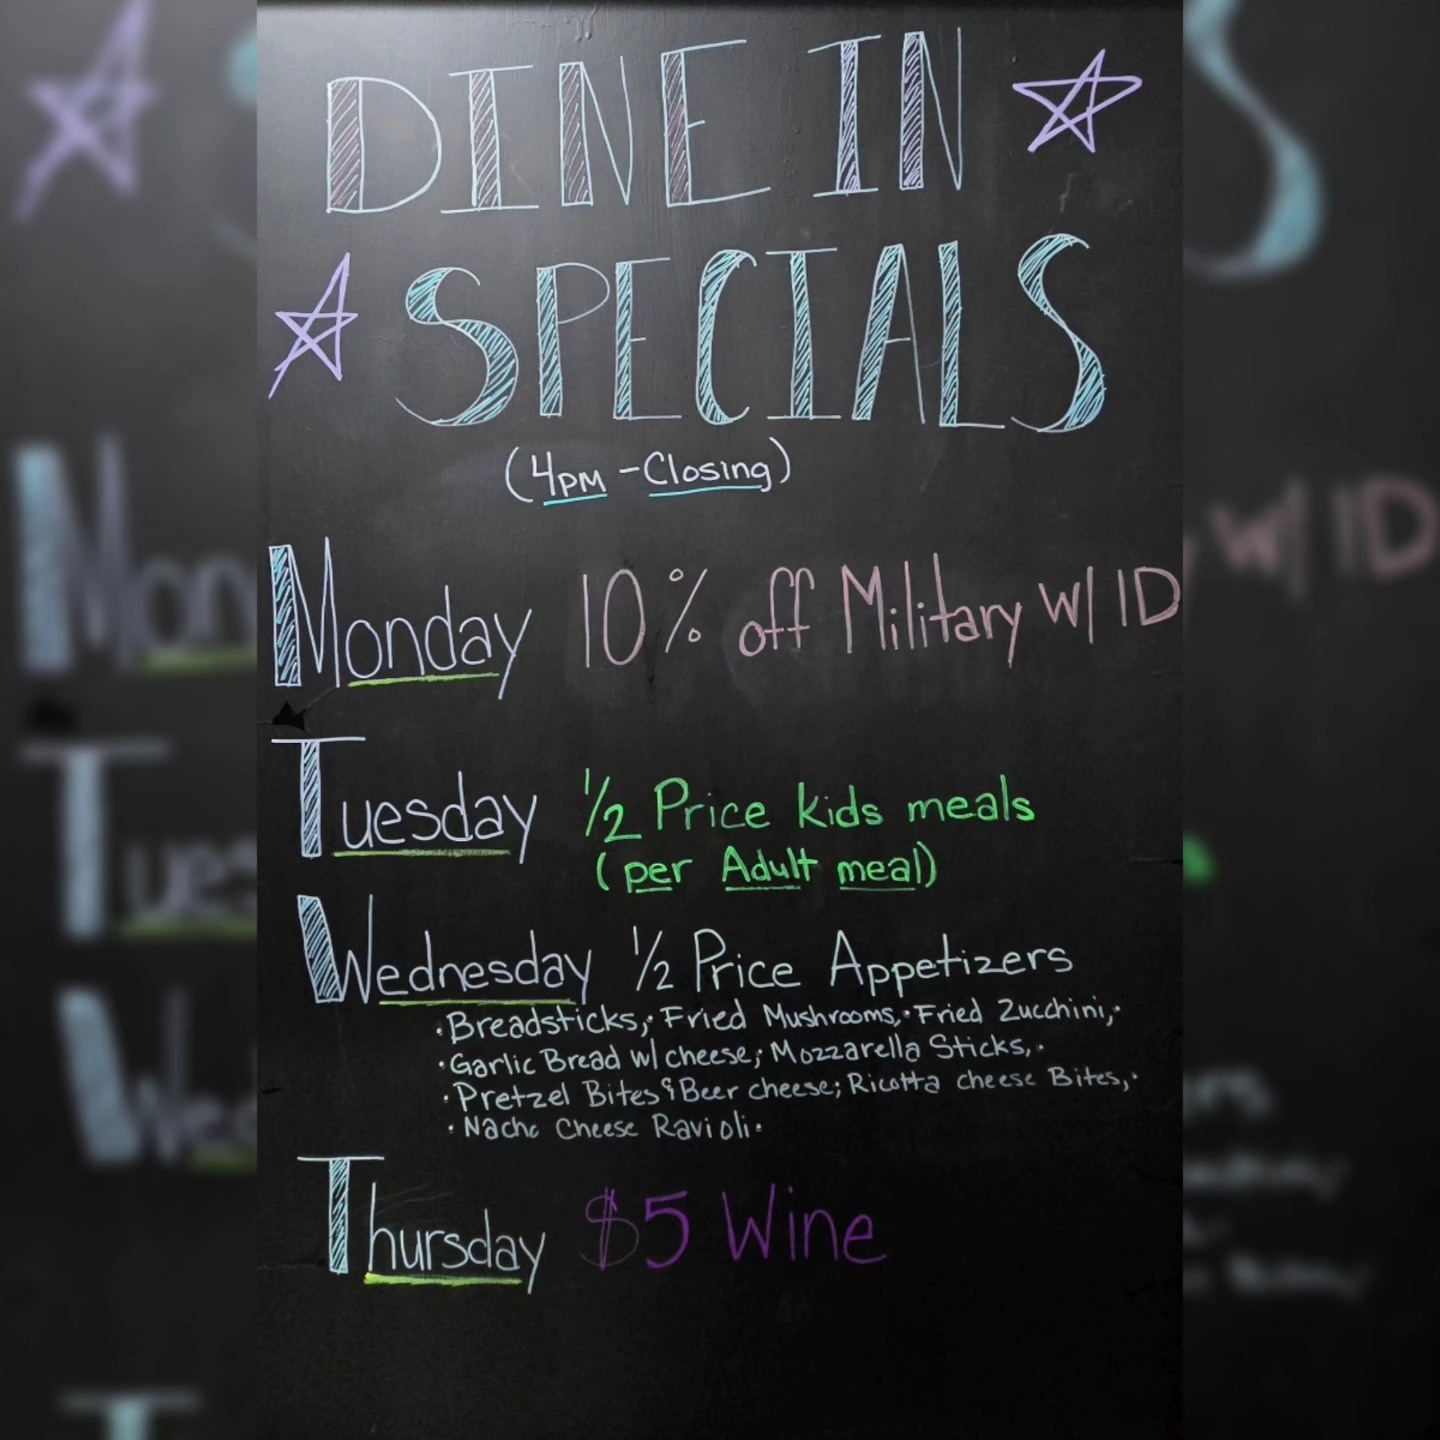 DINE IN
SPECIALS
(4PM - Closing)
Monday 10% off Military W/ ID
Tuesday 1/2 Price kids meals
(per Adult meal)
Wednesday 1/2 Price Appetizers
• Breadsticks, • Fried Mushrooms, • Fried Zucchini, •
• Garlic Bread w/ cheese, • Mozzarella Sticks, •
• Pretzel Bites & Beer cheese, • Ricotta cheese Bites, •
• Nacho Cheese Ravioli •
Thursday $5 Wine